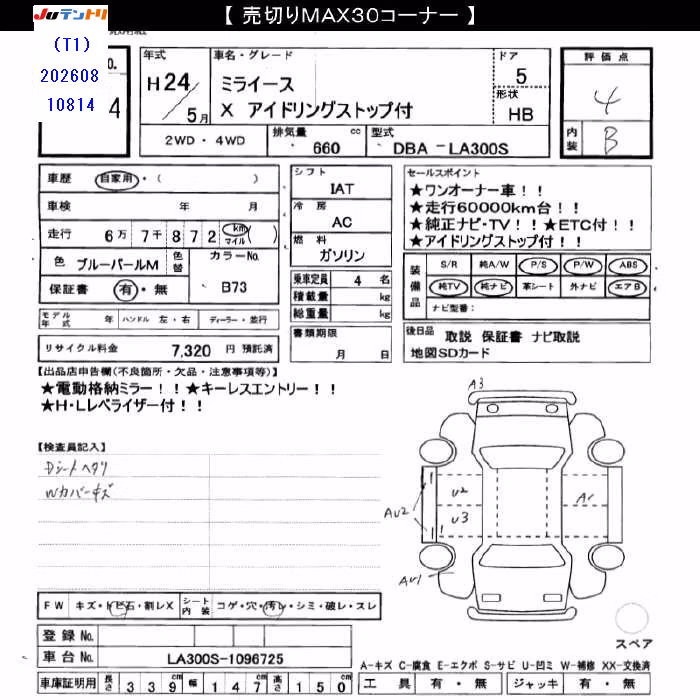 【 売切りMAX30コーナー 】
JUテントリ
(T1)
202608
10814
No.
4
年式
H24/5月
車名・グレード
ミライース
X アイドリングストップ付
ドア
5
形状
HB
評価点
4
内装
B
2WD・4WD
排気量 660 cc
型式 DBA-LA300S
車歴 自家用・( )
車検 年 月
走行 6万7千872 km マイル ( )
色 ブルーパールM 色替
カラーNo.
B73
保証書 有・無
モデル年式 年 ハンドル 左・右 ディーラー・並行
リサイクル料金 7,320 円 預託済
シフト
IAT
冷房
AC
燃料
ガソリン
乗車定員 4 名
積載量 kg
総重量 kg
書類期限
月 日
セールスポイント
★ワンオーナー車!!
★走行60000km台!!
★純正ナビ・TV!!★ETC付!!
★アイドリングストップ付!!
装備品
S/R 純A/W P/S P/W ABS
純TV 純ナビ 革シート 外ナビ エアB
ナビ型番:
後日品 取説 保証書 ナビ取説
地図SDカード
【出品店申告欄(不良箇所・欠品・注意事項等)】
★電動格納ミラー!!★キーレスエントリー!!
★H・Lレベライザー付!!
【検査員記入】
Dシートヘタリ
Wカバーキズ
A3
U2
U3
AU2
A1
AU1
スペア
FW キズ・トビ石・割レX
シート内装 コゲ・穴・汚レ・シミ・破レ・スレ
登録No.
車台No. LA300S-1096725
車庫証明用 長さ 339cm 幅 147cm 高さ 150cm
A-キズ C-腐食 E-エクボ S-サビ U-凹ミ W-補修 XX-交換済
工具 有・無 ジャッキ 有・無